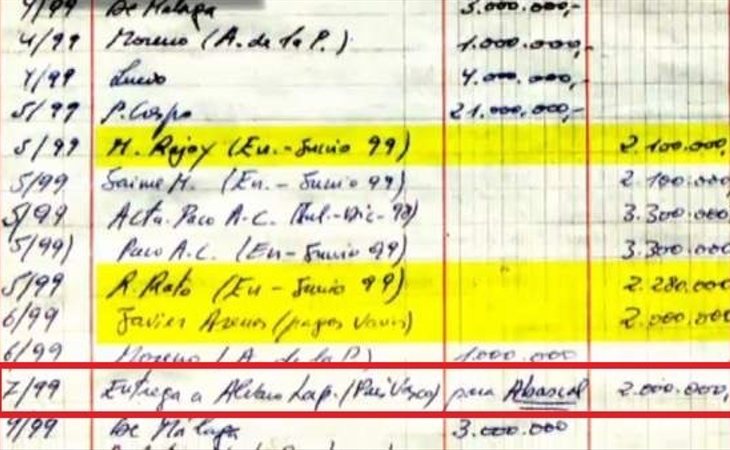 4/99 De Málaga 3.000.000,-
4/99 Moreno (A. de la P.) 1.000.000,-
4/99 Lucio 4.000.000,-
5/99 P. Crespo 21.000.000,-
5/99 M. Rajoy (En.-Junio 99) 2.100.000,
5/99 Jaime M. (En.-Junio 99) 2.100.000,
5/99 Acta. Paco A-C. (Jul.-Dic-98) 3.300.000,
5/99) Paco A.C. (En-Junio 99) 3.300.000,
5/99 R. Rato (En-Junio 99) 2.280.000,
6/99 Javier Arenas (pagos varios) 2.000.000,
6/99 Moreno (A. de la P) 1.000.000
7/99 Entrega a Alvaro Lap. (País Vasco) para Abascal 2.000.000,
7/99 De Málaga 3.000.000